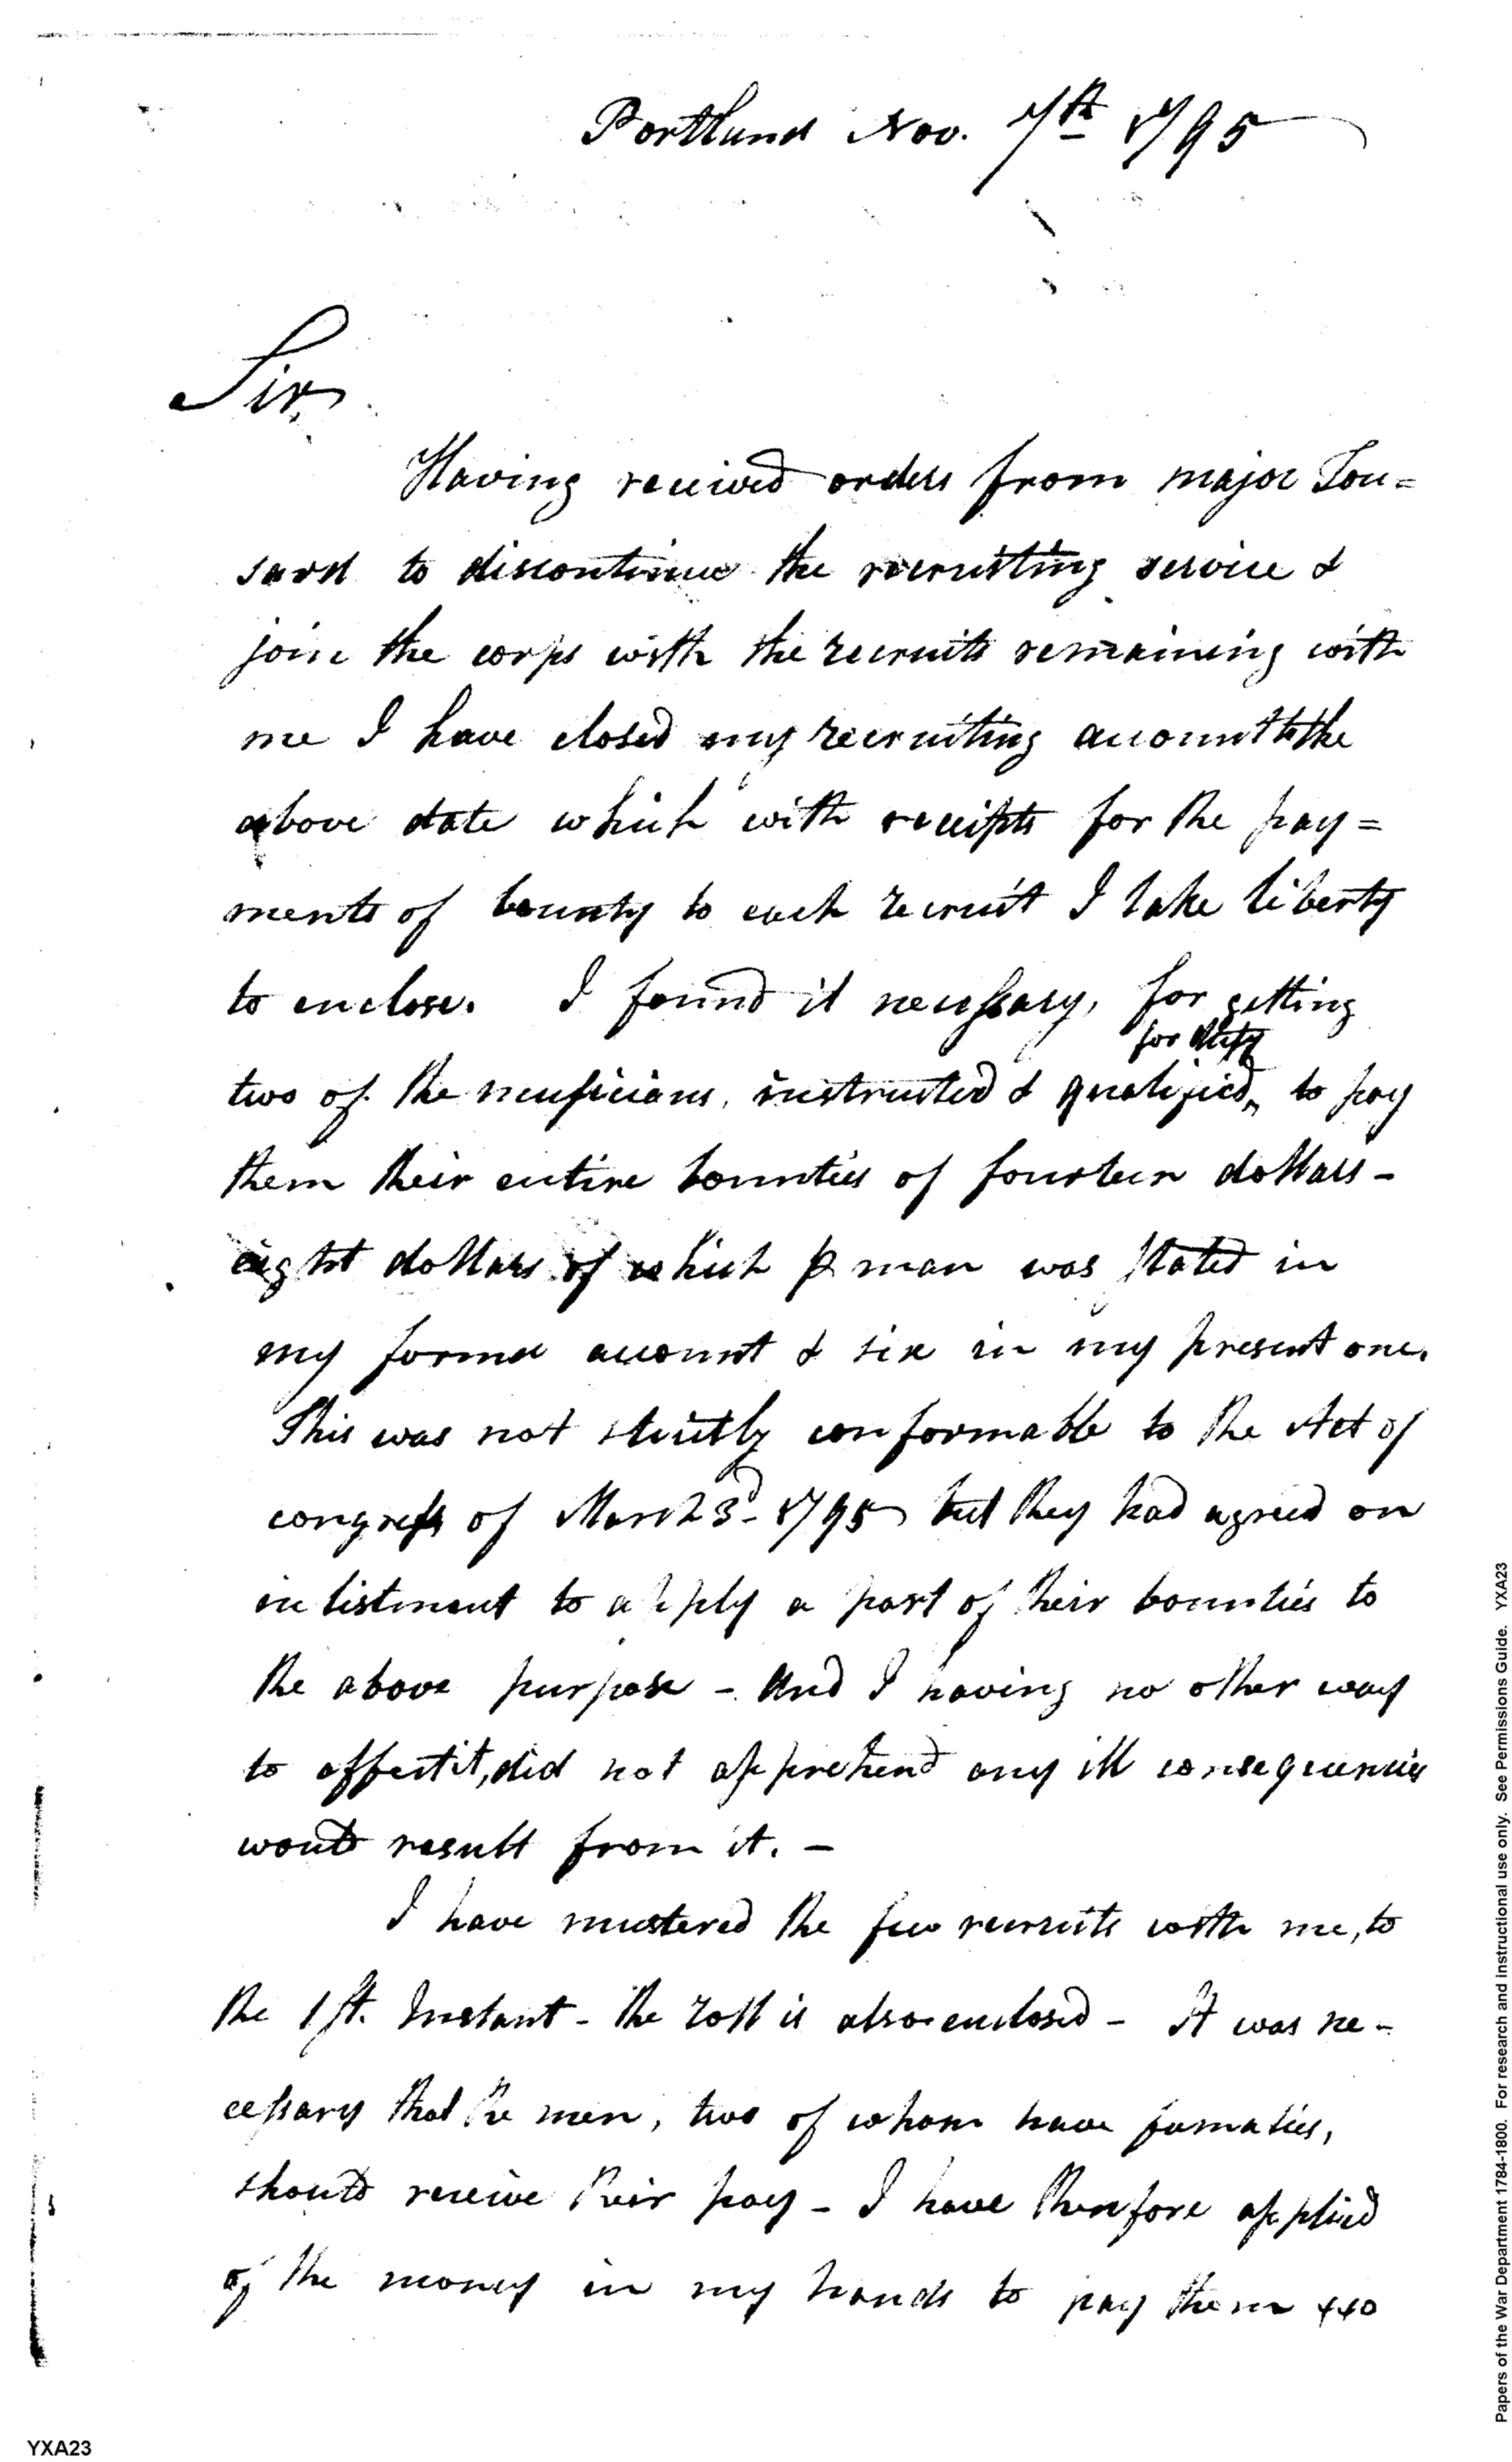 Portland Nov. 7th 1795
Sir
Having received orders from major Tou=
sard to discontinue the recruiting service &
join the corps with the recruits remaining with
me I have closed my recruiting account to the
above date which with receipts for the pay=
ments of bounty to each recruit I take liberty
to enclose. I found it necessary, for getting
for duty
two of the musicians, instructed & qualified‸ to pay
them their entire bounties of fourteen dollars -
eight dollars of which ⅌ man was stated in
my former account & six in my present one.
This was not strictly conformable to the Act of
congress of March 3d 1795 but they had agreed on
enlistment to apply a part of their bounties to
the above purpose - And I having no other way
to effect it, did not apprehend any ill consequencies
would result from it. -
I have mustered the few recruits with me, to
the 1st. Instant - the roll is also enclosed - It was ne-
cessary that the men, two of whom have families,
should receive their pay - I have therefore applied
of the money in my hands to pay them
Papers of the War Department 1784-1800. For research and instructional use only. See Permissions Guide. YXA23
YXA23